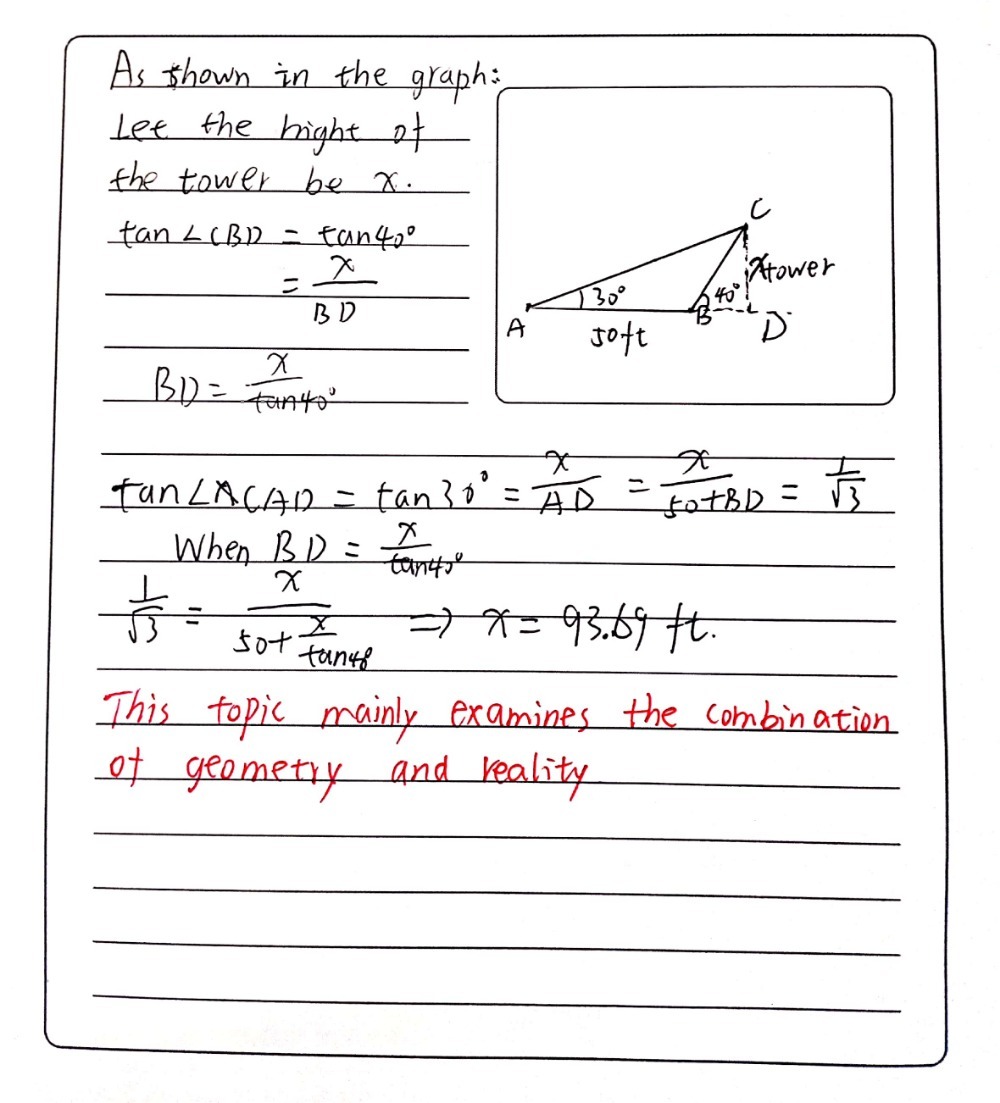 As shown in the graph:
Let the hight of
the tower be x.
tan∠CBD = tan40°
= x/BD
BD = x/tan40°
C
x tower
30°
40°
A
B
D
50ft
tan∠CAD = tan30° = x/AD = x/50+BD = 1/√3
When BD = x/tan40°
1/√3 = x/50+x/tan40 => x = 93.69 ft.
This topic mainly examines the combination
of geometry and reality